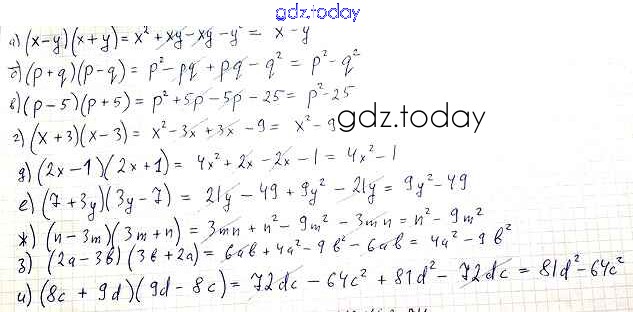 gdz.today
а) (x-y)(x+y) = x² + xy - xy - y² = x - y
б) (p+q)(p-q) = p² - pq + pq - q² = p² - q²
в) (p-5)(p+5) = p² + 5p - 5p - 25 = p² - 25
г) (x+3)(x-3) = x² - 3x + 3x - 9 = x² - 9 gdz.today
д) (2x-1)(2x+1) = 4x² + 2x - 2x - 1 = 4x² - 1
е) (7+3y)(3y-7) = 21y - 49 + 9y² - 21y = 9y² - 49
ж) (n-3m)(3m+n) = 3mn + n² - 9m² - 3mn = n² - 9m²
з) (2a-3b)(3b+2a) = 6ab + 4a² - 9b² - 6ab = 4a² - 9b²
и) (8c + 9d)(9d - 8c) = 72dc - 64c² + 81d² - 72dc = 81d² - 64c²